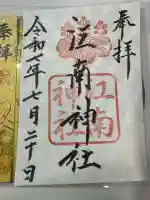 奉拝
江南神社
江南
神社
令和七年七月二十日